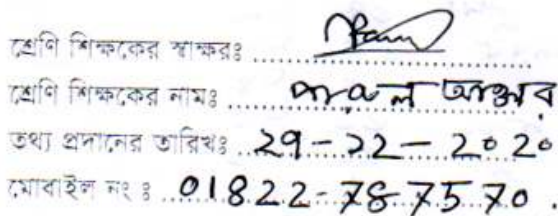 শ্রেণি শিক্ষকের স্বাক্ষরঃ
শ্রেণি শিক্ষকের নামঃ পারুল আক্তার
তথ্য প্রদানের তারিখঃ ২৭-১২-২০২০
মোবাইল নং ঃ 01822-787570